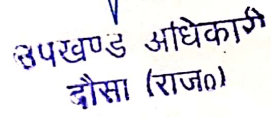 उपखण्ड अधिकारी
दौसा (राज०)